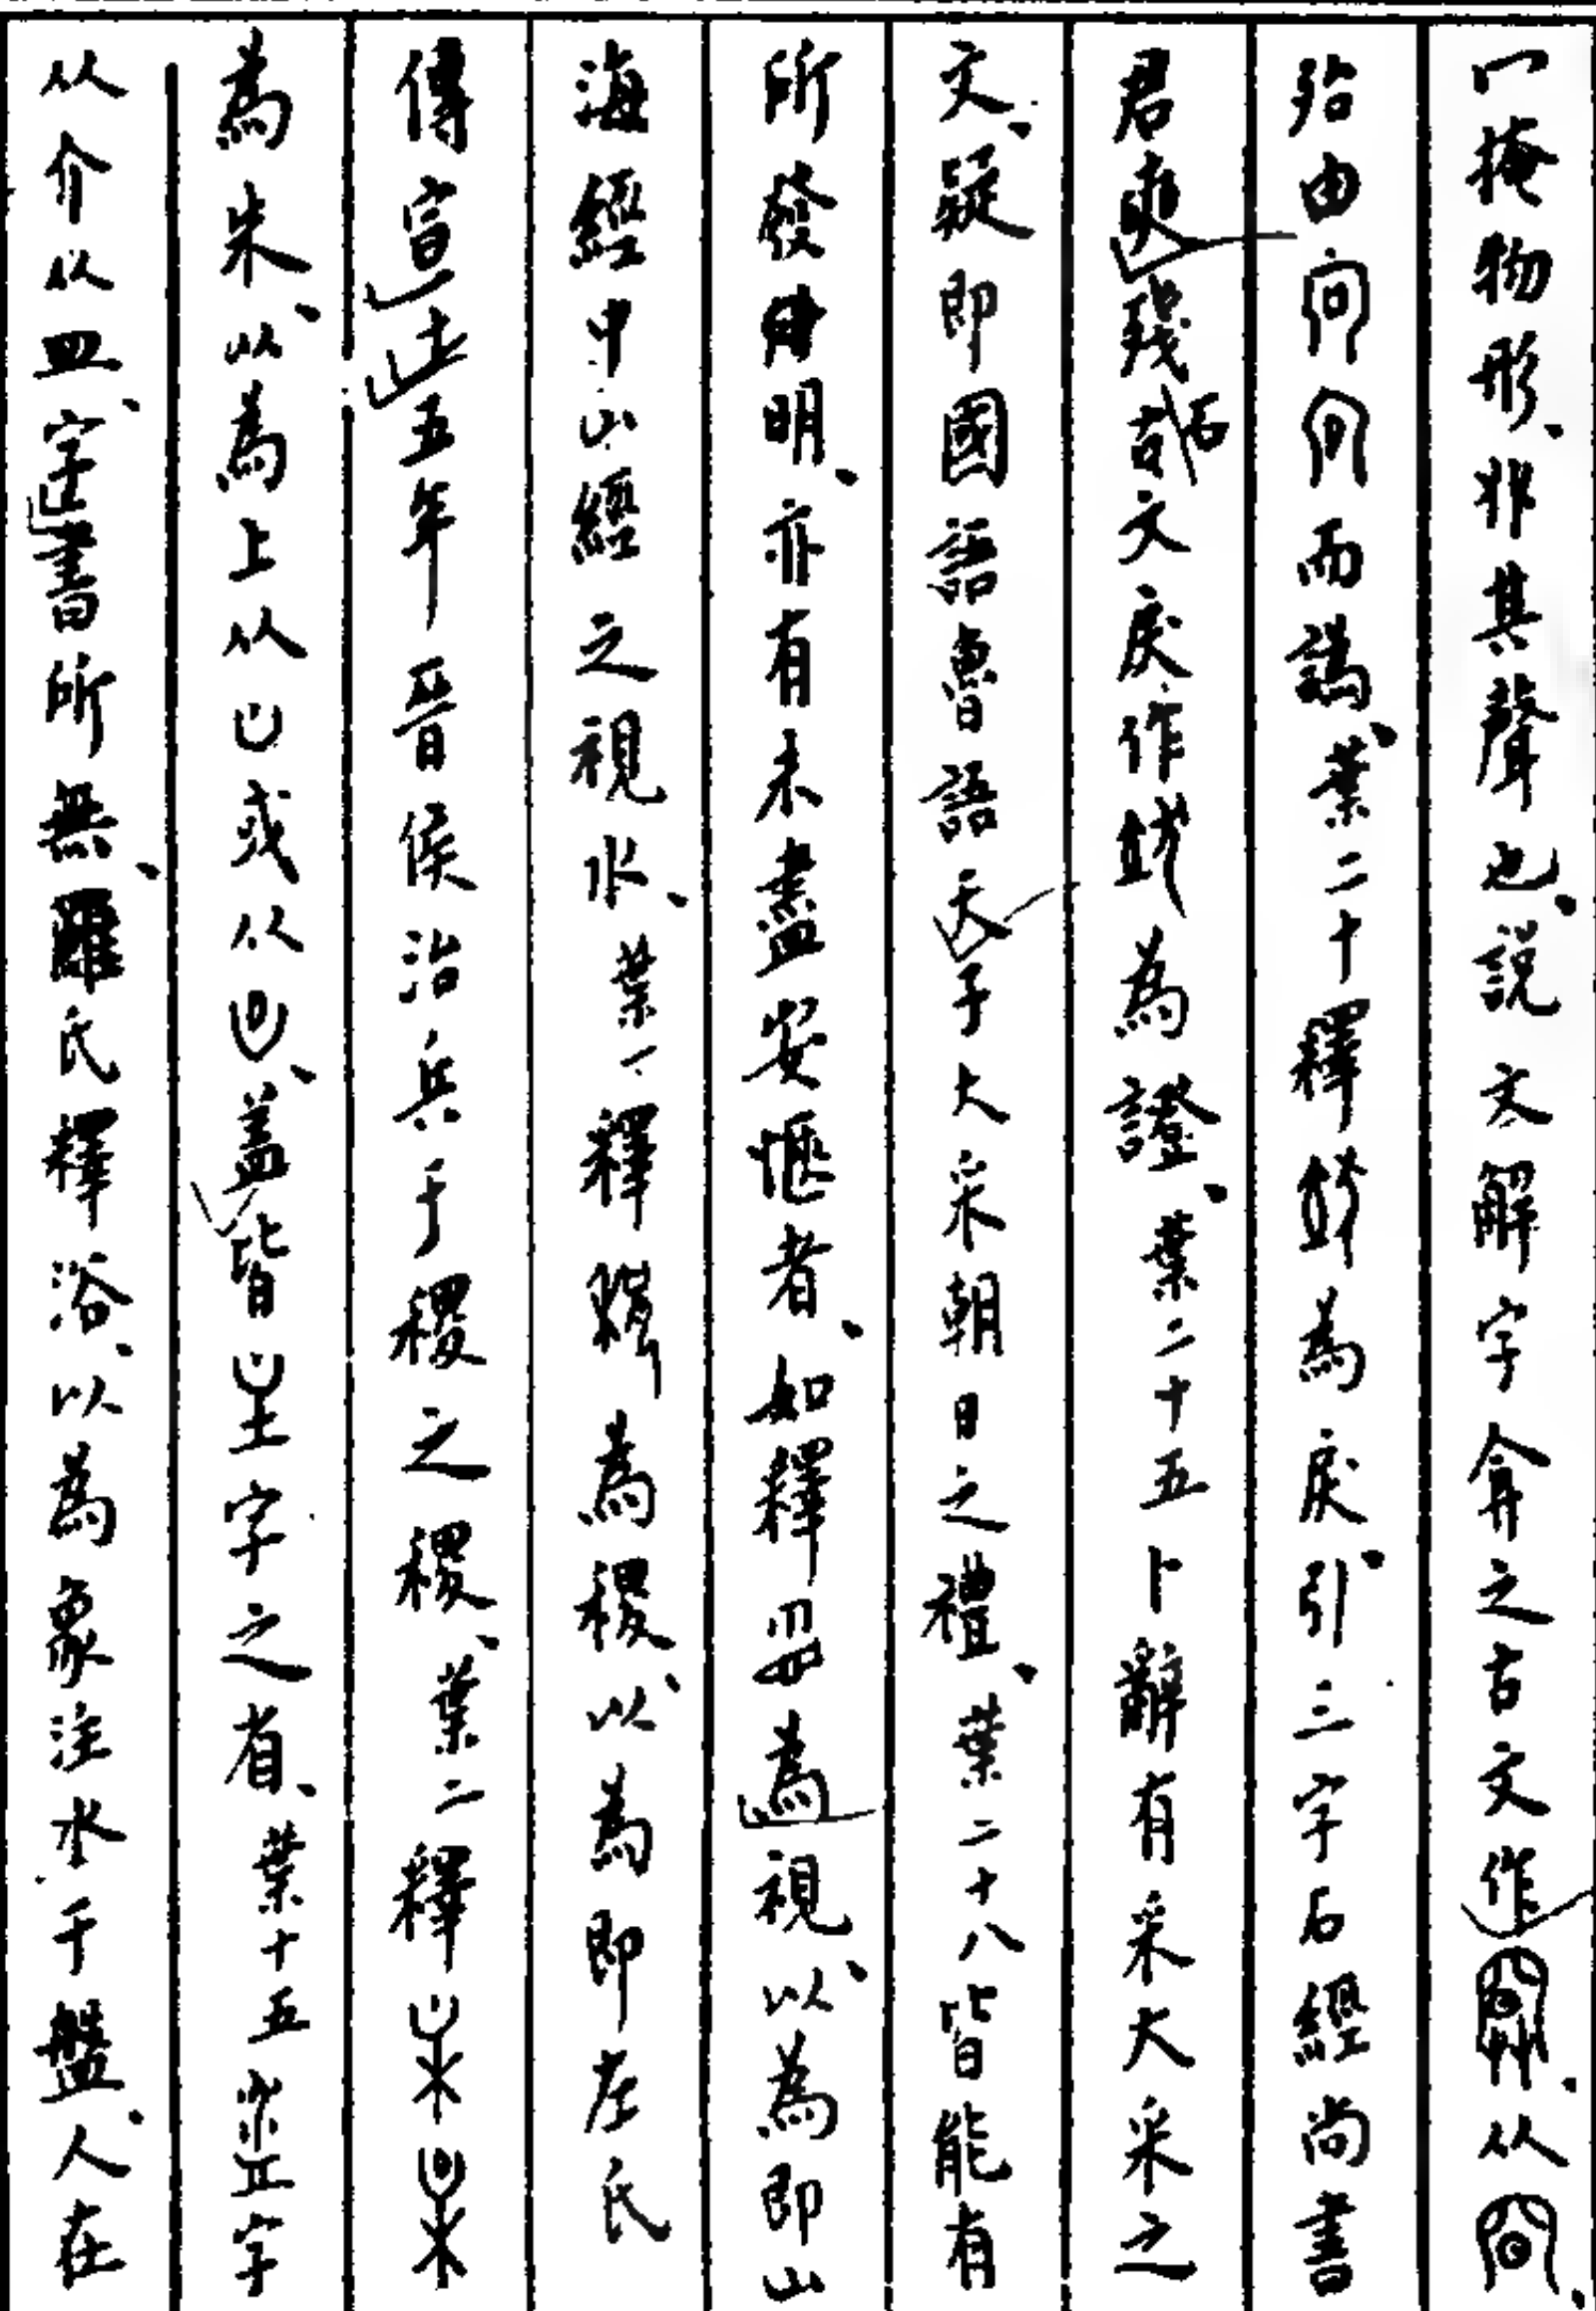 冖掩物形、非其聲也、説文解字弇之古文作、从、
殆由而譌、葉二十釋為戾、引三字石經尚書
君奭殘石文戾作為證、葉二十五卜辭有采大采之
文、疑即國語魯語天子大采朝日之禮、葉二十八皆能有
所發明、亦有未盡安愜者、如釋為視、以為即山
海經中山經之視水、葉一釋為稷、以為即左氏
傳宣十五年晉侯治兵于稷之稷、葉二釋
為朱、以為上从凵或从、蓋皆字之省、葉十五字
从介从皿、字書所無、羅氏釋浴、以為象注水于盤、人在